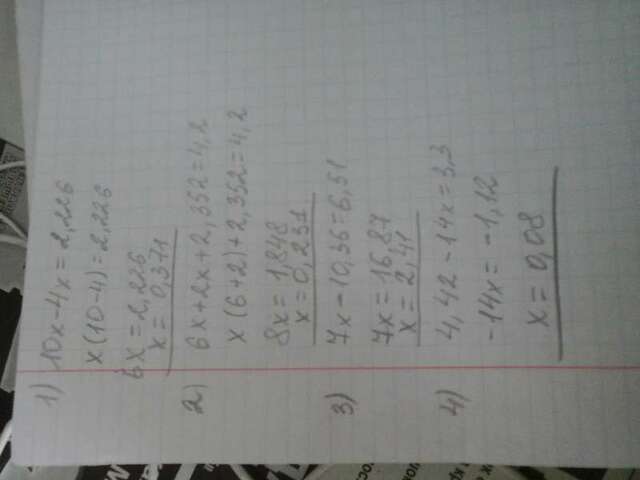 1) 10x-4x=2,226
x(10-4)=2,226
6x=2,226
x=0,371
2) 6x+2x+2,352=4,2
x(6+2)+2,352=4,2
8x=1,848
x=0,231
3) 7x-10,36=6,51
7x=16,87
x=2,41
4) 4,42-14x=3,3
-14x=-1,12
x=0,08